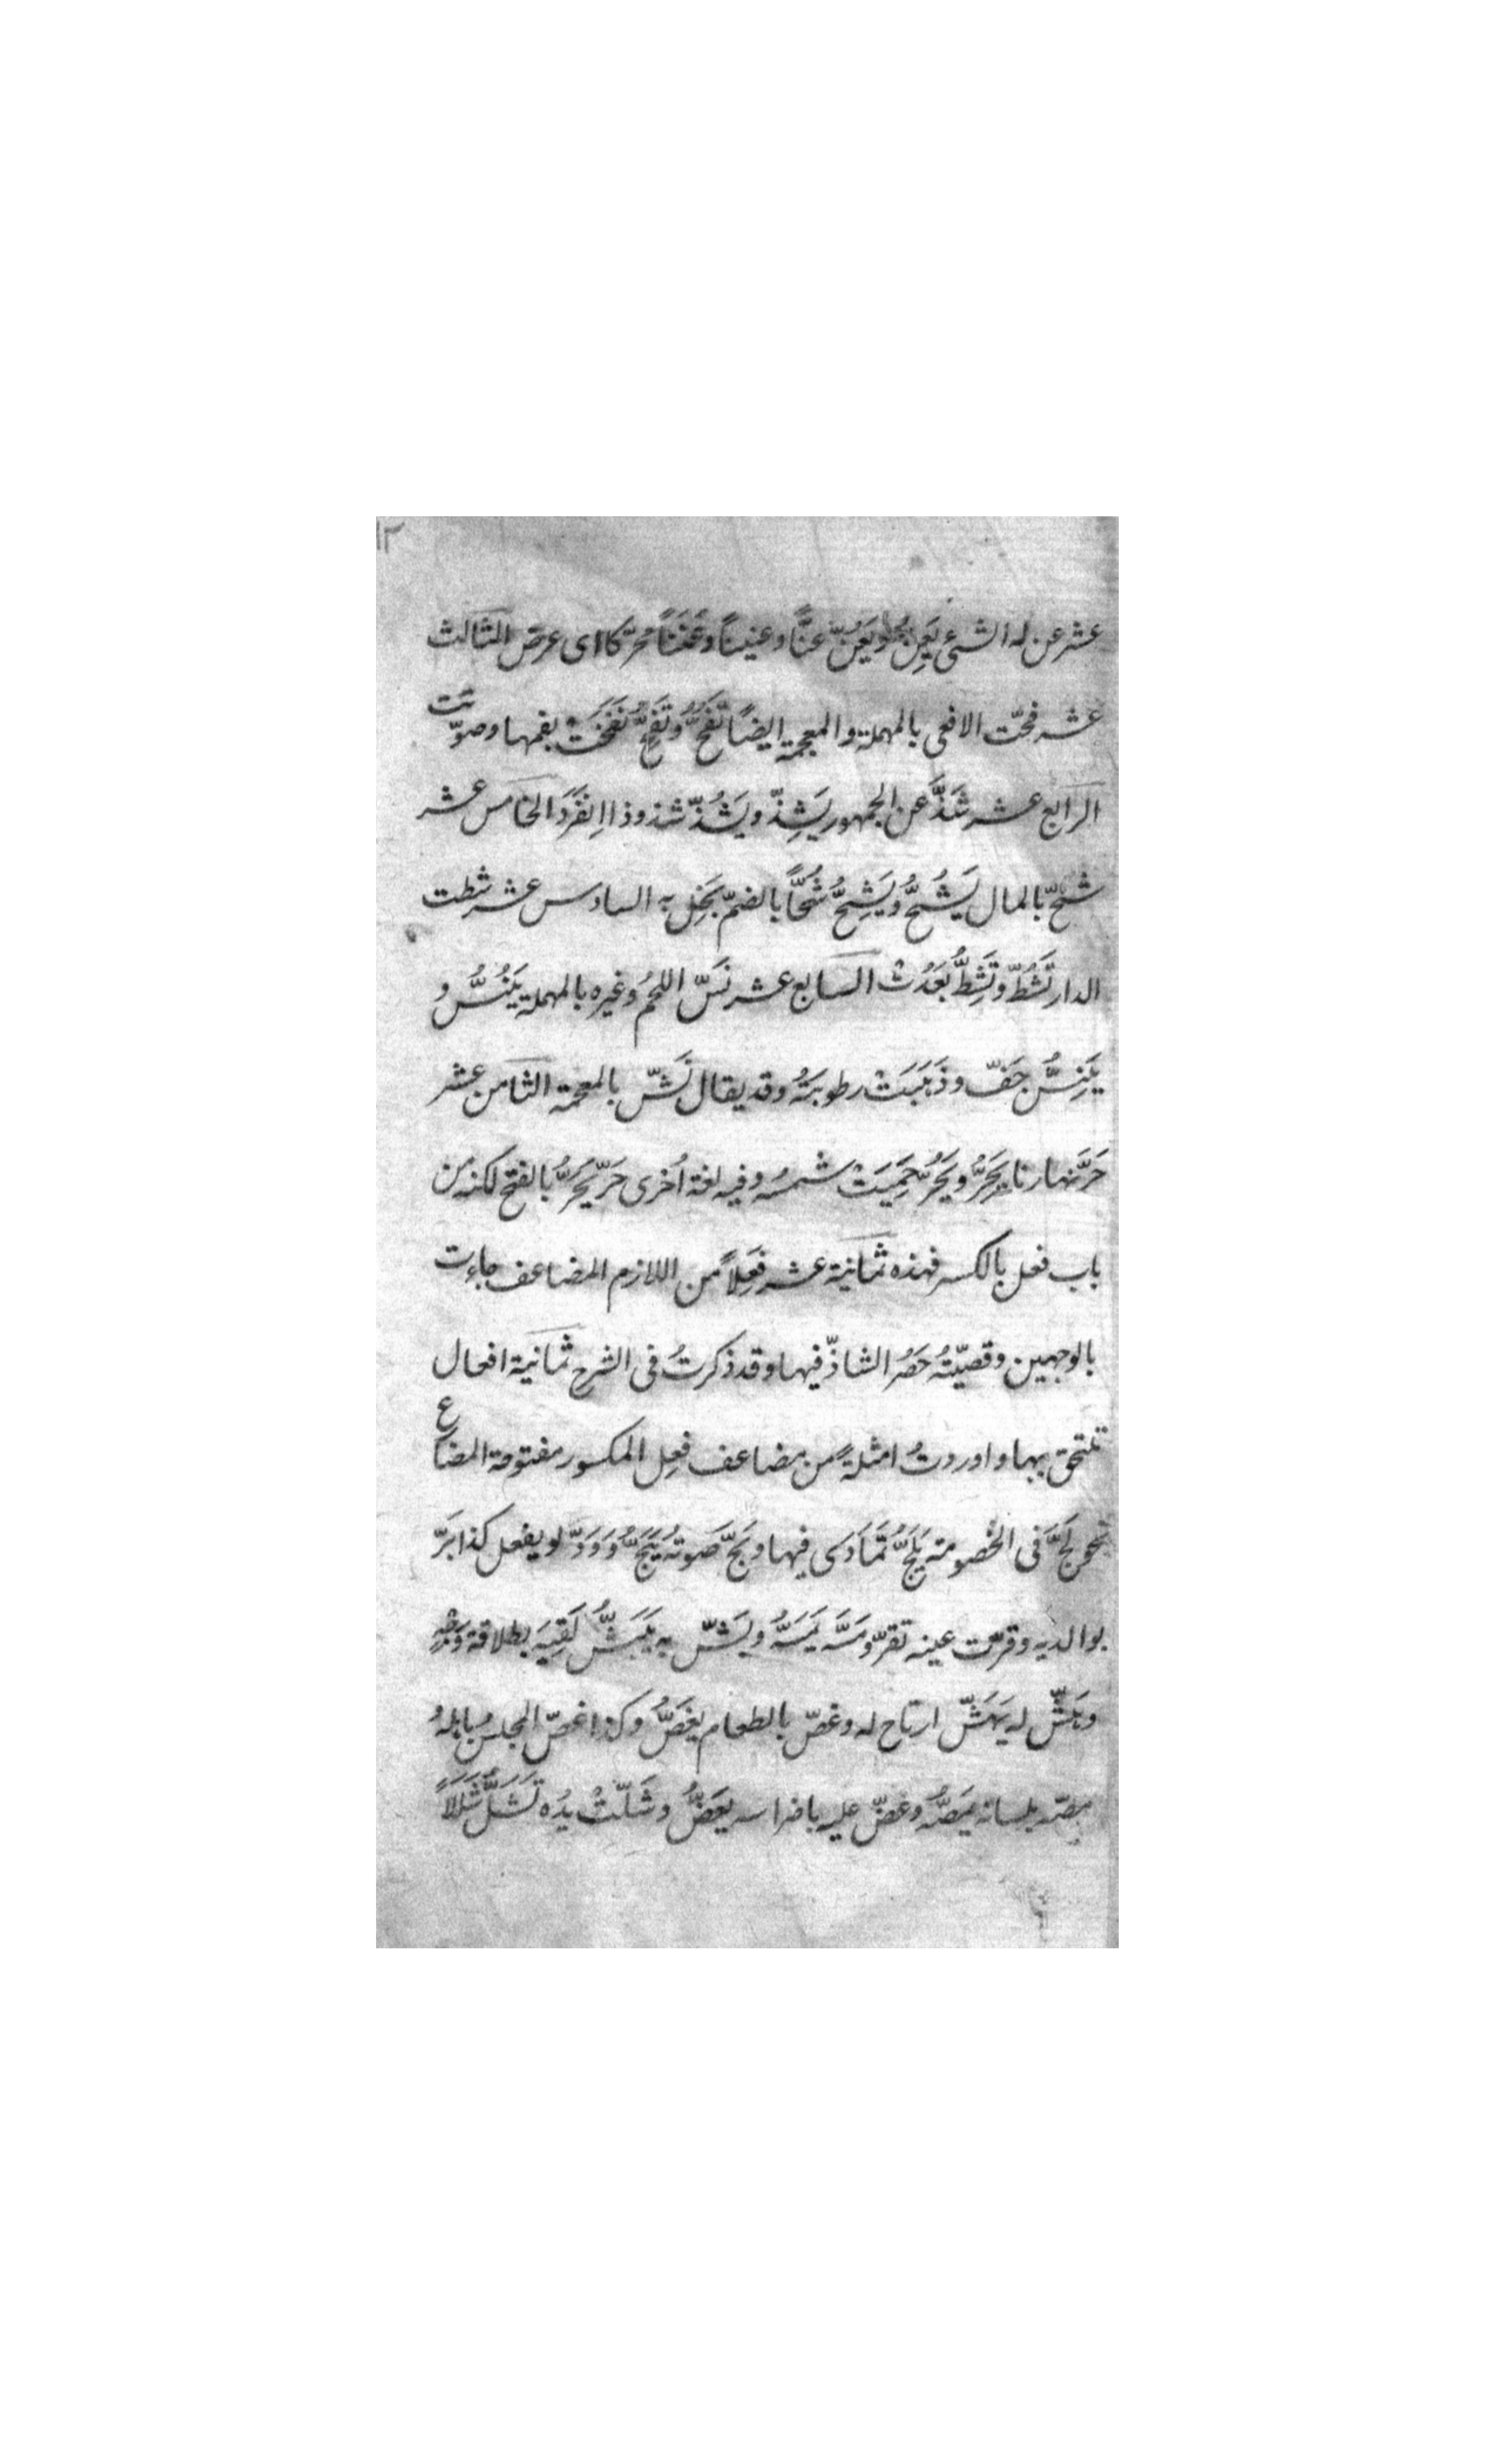 ١٢
عشر عن له الشئ يَعِنّ ويَعُنّ عنًّا وعنيناً وعَنَناً محرّكا اى عرض الثالث
عشر فحّت الافعى بالمهملة والمعجمة ايضًا تَفُحُّ وتَفِحُّ نَفَخَتْ بفمها وصوّتت
الرابع عشر شَذَّ عن الجمهور يَشِذّ ويَشُذّ شذوذا اِنفَرَدَ الخامس عشر
شحّ بالمال يَشُحُّ ويَشِحُّ شُحًّا بالضمّ بَخِل به السادس عشر شطت
الدار تَشُطّ وتَشِطُّ بَعُدَتْ السابع عشر نَسّ اللحمُ وغيره بالمهملة يَنُسُّ و
يَنِسُّ جَفّ وذَهَبَتْ رطوبتهُ وقد يقال نَشّ بالمعجمة الثامن عشر
حَرَّ نهارنا يَحِرُّ ويَحُرُّ حَمِيَتْ شمسُه وفيه لغة اُخرى حَرّ يَحَرُّ بالفتح لكنه من
باب فعل بالكسر فهذه ثمانية عشر فِعلاً من اللازم المضاعف جاءت
بالوجهين وقضيّتهُ حَصْرُ الشاذّ فيها وقد ذكرتُ فى الشرح ثمانية افعال
تلتحق بها واوردتُ امثلةً من مضاعف فعِل المكسور مفتوحة المضارع
نحو لَجَّ فى الخصومة يَلَجُّ تَمَادى فيها وبَحَّ صَوتهُ يَبَحُّ وَوَدَّ لو يفعل كذا بَرَّ
بوالديه وقرّت عينه تقرّ ومَسَّه يَمَسُّه وبَشّ به يَبَشُّ لَقِيَه بطلاقة وَجْهِهِ
وهَشّ له يَهَشّ ارتاح له وغصّ بالطعام يغَصُّ وكذا غصّ المجلس باهلهُ
مصّه بلسانه يَمَصُّه وعضّ عليه باضراسه يعَضُّ وشَلّتْ يدُه تَشَلُّ شَلَلاً